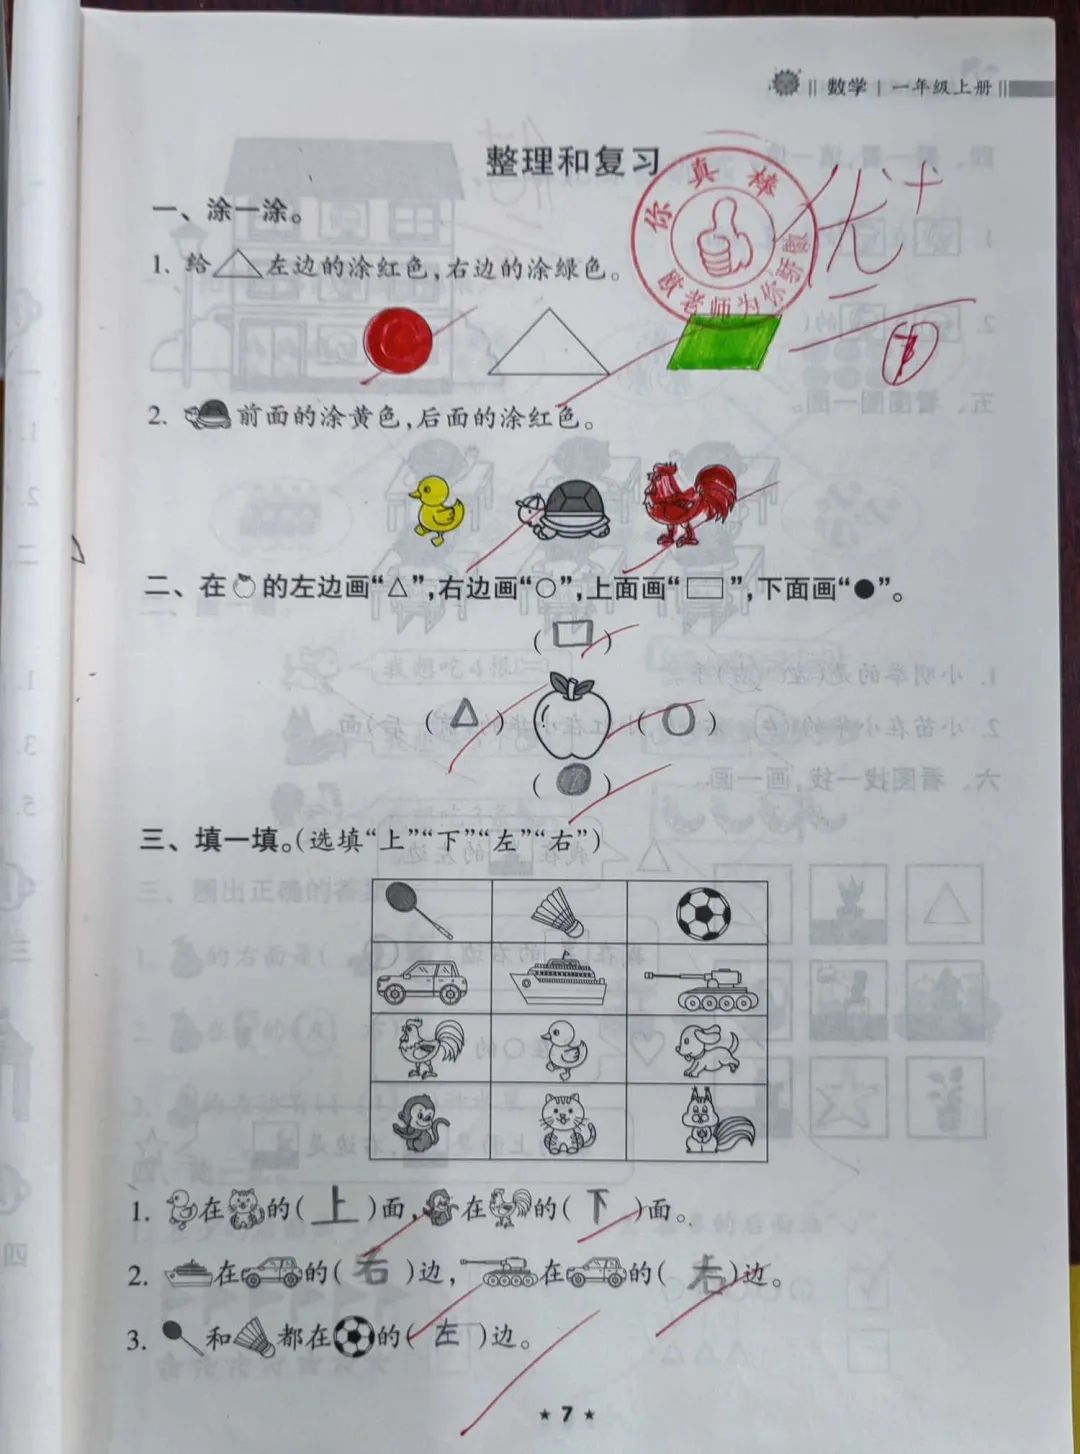 数学 | 一年级上册
整理和复习
你真棒
欧老师为你骄傲
优+
一、涂一涂。
1. 给△左边的涂红色,右边的涂绿色。
2. 前面的涂黄色,后面的涂红色。
二、在的左边画“△”,右边画“○”,上面画“□”,下面画“●”。
(□)
(△) (○)
(●)
三、填一填。(选填“上”“下”“左”“右”)
1. 在的(上)面,在的(下)面。
2. 在的(右)边,在的(右)边。
3. 和都在的(左)边。
★ 7 ★